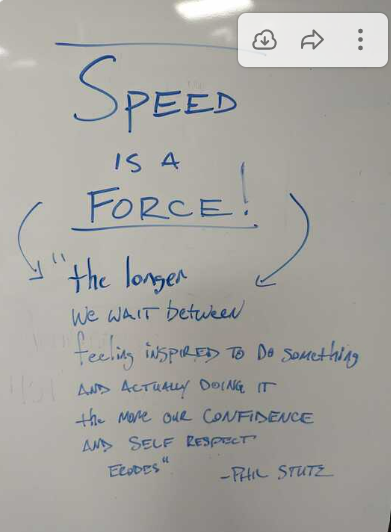 SPEED
IS A
FORCE!
"the longer
WE WAIT between
feeling INSPIRED TO DO something
AND ACTUALLY DOING IT
the MORE OUR CONFIDENCE
AND SELF RESPECT
ERODES"
-PHIL STUTZ